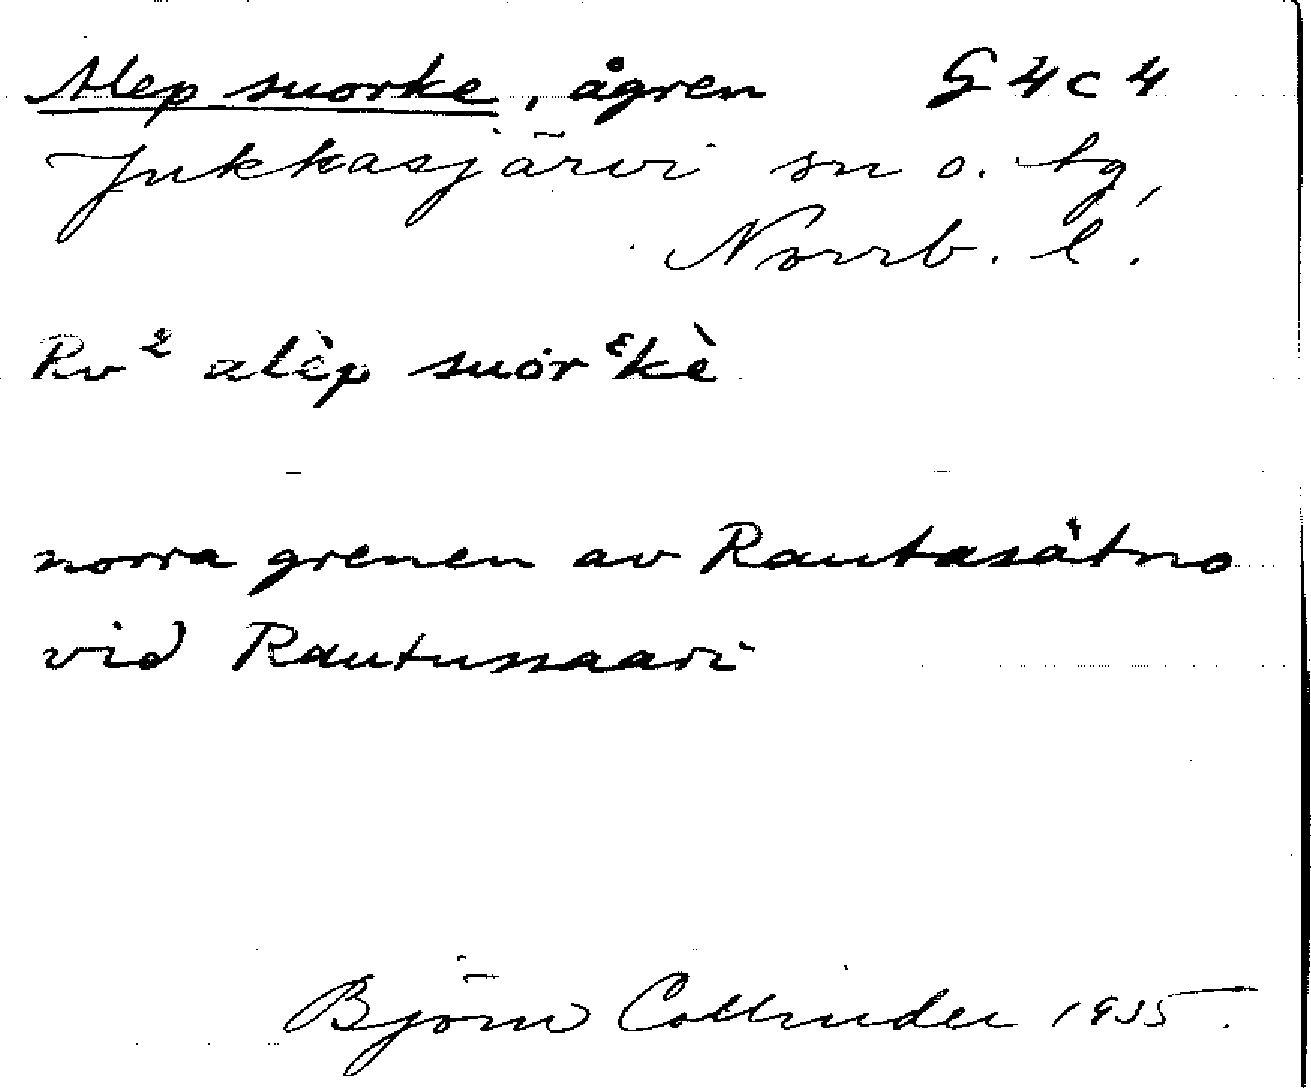 Alep suorke, ågren G 4 c 4
Jukkasjärvi sn o. tg,
Norrb. l.
Rv² alèp suȯrᵋkè
norra grenen av Rautasätno
vid Rautusaari
Björn Collinder 1935.